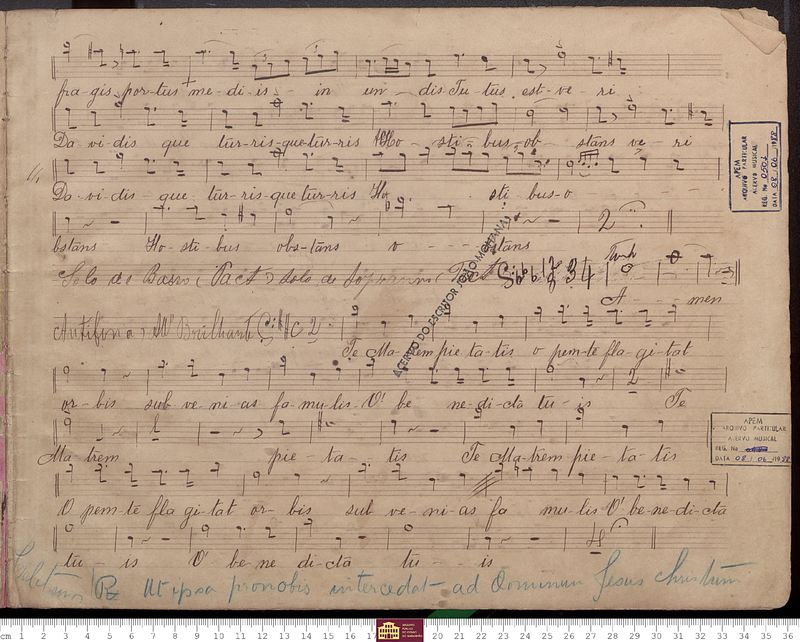 fra-gis por-tus me-di-is - in un - dis Tu-tus est-ve - ri
Da-vi-dis que tur-ris-que tur-ris Ho - sti - bus-ob - stans ve - ri
Da-vi-dis - que tur-ris que tur-ris Ho sti - bus-o
bstans Ho-sti-bus obs-tans o - - - - stans
Solo de Basso (Tact) solo de Soprano (Tact
A - - - men
Antifona
Te Ma-trem pie-ta-tis o pem-te fla-gi-tat
or-bis sub-ve-ni-as fa-mu-lis-O' be ne-di-cta tu-is Te
Ma-trem pie-ta-tis Te Ma-trem pie-ta-tis
O pem-te fla gi-tat or-bis sub ve-ni-as fa mu-lis O' be-ne-di-cta
tu - is O' be-ne di-cta tu - - is
Ut ipsa pro nobis intercedat - ad Dominum Jesus Christum
ACERVO DO ESCRITOR JOÃO MOHANA
APEM
ARQUIVO PARTICULAR
ACERVO MUSICAL
REG. No 0501
DATA 08/06/1988
APEM
ARQUIVO PARTICULAR
ACERVO MUSICAL
REG. No
DATA 08/06/1988
cm 1 2 3 4 5 6 7 8 9 10 11 12 13 14 15 16 17